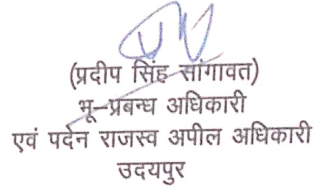 (प्रदीप सिंह सांगावत)
भू–प्रबन्ध अधिकारी
एवं पर्देन राजस्व अपील अधिकारी
उदयपुर